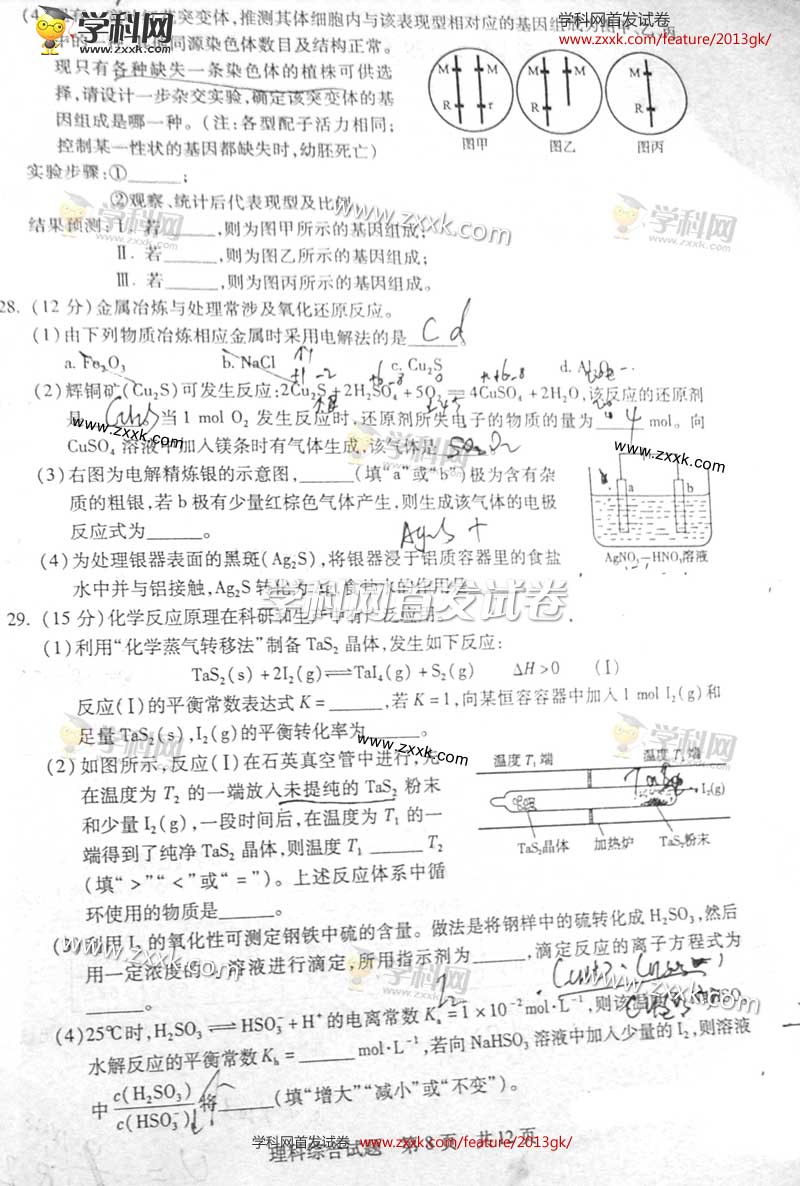 学科网
www.zxxk.com
学科网首发试卷 www.zxxk.com/feature/2013gk/
突变体,推测其体细胞内与该表现型相对应的基因组成为图甲、乙、丙
同源染色体数目及结构正常。
现只有各种缺失一条染色体的植株可供选
择,请设计一步杂交实验,确定该突变体的基
因组成是哪一种。(注:各型配子活力相同;
控制某一性状的基因都缺失时,幼胚死亡)
M M R r 图甲
M M R 图乙
M M R 图丙
实验步骤:①______;
②观察、统计后代表现型及比例
结果预测:Ⅰ. 若______,则为图甲所示的基因组成;
Ⅱ. 若______,则为图乙所示的基因组成;
Ⅲ. 若______,则为图丙所示的基因组成。
www.zxxk.com
学科网
www.zxxk.com
学科网
www.zxxk.com
28. (12 分)金属冶炼与处理常涉及氧化还原反应。
(1)由下列物质冶炼相应金属时采用电解法的是 C d
a. Fe₂O₃ b. NaCl c. Cu₂S d. Al₂O₃
(2)辉铜矿(Cu₂S)可发生反应:2Cu₂S+2H₂SO₄+5O₂══4CuSO₄+2H₂O,该反应的还原剂
是______当 1 mol O₂ 发生反应时,还原剂所失电子的物质的量为 4 mol。向
CuSO₄ 溶液中加入镁条时有气体生成,该气体是
www.zxxk.com
www.zxxk.com
学科网
www.zxxk.com
(3)右图为电解精炼银的示意图,______(填“a”或“b”)极为含有杂
质的粗银,若 b 极有少量红棕色气体产生,则生成该气体的电极
反应式为______。
a b
AgNO₃—HNO₃溶液
(4)为处理银器表面的黑斑(Ag₂S),将银器浸于铝质容器里的食盐
水中并与铝接触,Ag₂S 转化为
学科网首发试卷
29. (15 分)化学反应原理在科研和
(1)利用“化学蒸气转移法”制备 TaS₂ 晶体,发生如下反应:
TaS₂(s)+2I₂(g)⇌TaI₄(g)+S₂(g) ΔH>0 (Ⅰ)
反应(Ⅰ)的平衡常数表达式 K=______,若 K=1,向某恒容容器中加入 1 mol I₂(g)和
足量 TaS₂(s),I₂(g)的平衡转化率为______。
学科网
www.zxxk.com
www.zxxk.com
学科网
www.zxxk.com
(2)如图所示,反应(Ⅰ)在石英真空管中进行,先
在温度为 T₂ 的一端放入未提纯的 TaS₂ 粉末
和少量 I₂(g),一段时间后,在温度为 T₁ 的一
端得到了纯净 TaS₂ 晶体,则温度 T₁ ______ T₂
(填“>”“<”或“=”)。上述反应体系中循
环使用的物质是______。
温度T₁端
I₂(g)
TaS₂晶体 加热炉 TaS₂粉末
(3)利用 I₂ 的氧化性可测定钢铁中硫的含量。做法是将钢样中的硫转化成 H₂SO₃,然后
用一定浓度的 I₂ 溶液进行滴定,所用指示剂为______,滴定反应的离子方程式为
______。
学科网
www.zxxk.com
学科网
www.zxxk.com
www.zxxk.com
(4)25℃时,H₂SO₃⇌HSO₃⁻+H⁺的电离常数 Kₐ=1×10⁻²mol·L⁻¹,则该温度
水解反应的平衡常数 Kₕ=______ mol·L⁻¹,若向 NaHSO₃ 溶液中加入少量的 I₂,则溶液
中 c(H₂SO₃)/c(HSO₃⁻) 将______(填“增大”“减小”或“不变”)。
学科网首发试卷 www.zxxk.com/feature/2013gk/
理科综合试题 第 8 页 共 12 页